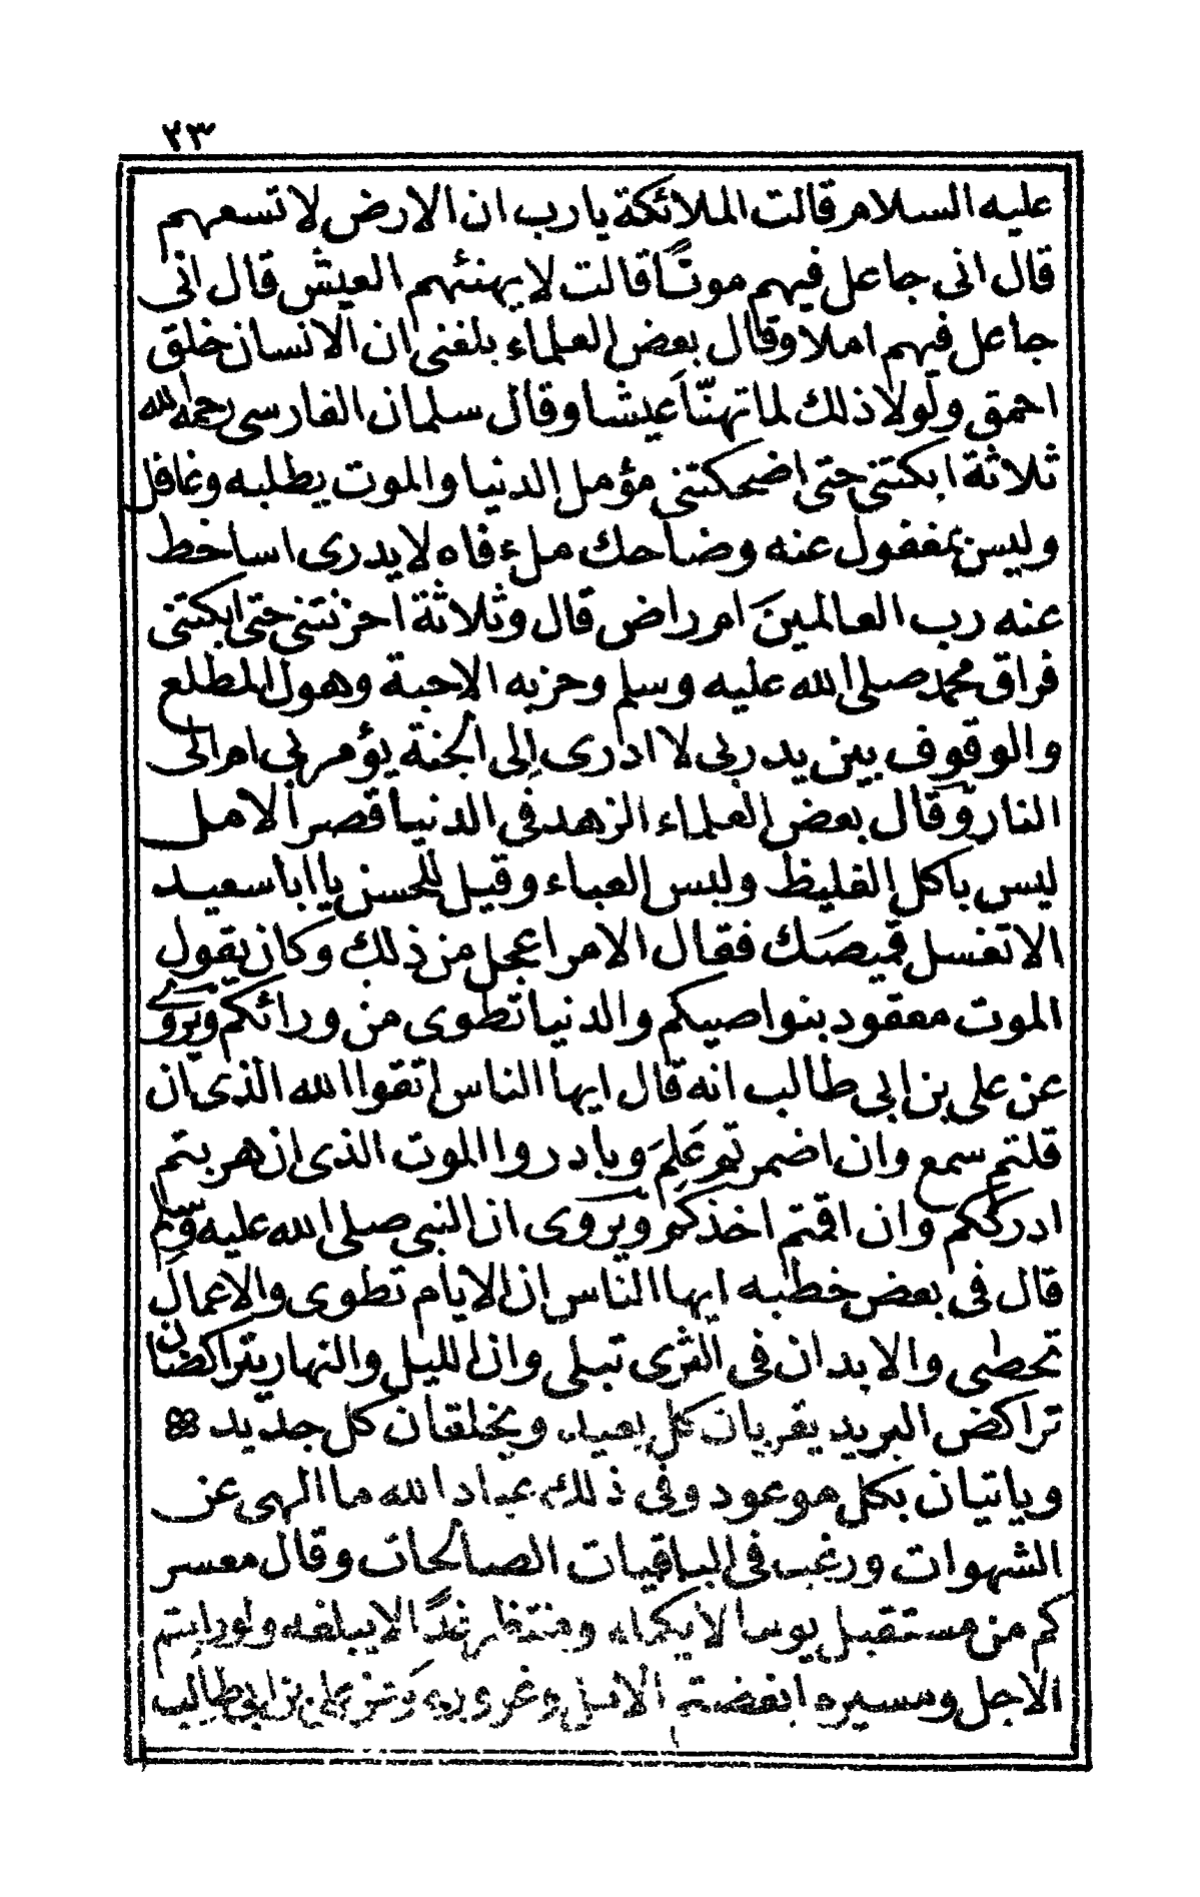 ٢٣
عليه السلام قالت الملائكة يارب ان الارض لا تسعهم
قال انى جاعل فيهم موتًا قالت لا يهنئهم العيش قال انى
جاعل فيهم املا وقال بعض العلماء بلغنى ان الانسان خلق
احمق ولولا ذلك لما تهنّأ عيشا وقال سلمان الفارسى رحمه الله
ثلاثة ابكتنى حتى اضحكتنى مؤمل الدنيا والموت يطلبه وغافل
وليس بمغفول عنه وضاحك ملء فاه لا يدرى اساخط
عنه رب العالمينَ ام راض قال وثلاثة احزنتنى حتى ابكتنى
فراق محمد صلى الله عليه وسلم وحزبه الاحبة وهول المطلع
والوقوف بين يد ربى لا ادرى إلى الجنة يؤمر بى ام الى
النار وقال بعض العلماء الزهد فى الدنيا قصر الامل
ليس باكل الغليظ ولبس العباء وقيل للحسن يا ابا سعيد
الا تغسل قميصَك فقال الامر اعجل من ذلك وكان يقول
الموت معقود بنواصيكم والدنيا تطوى من ورائكم ويروى
عن على بن ابى طالب انه قال ايها الناس اتقوا الله الذى ان
قلتم سمع وان اضمرتم عَلِمَ وبادروا الموت الذى ان هربتم
ادرككم وان اقمتم اخذكم ويروى ان النبى صلى الله عليه وسلم
قال فى بعض خطبه ايها الناس ان الايام تطوى والاعمال
تحصى والابدان فى الثرى تبلى وان الليل والنهار يتراكضان
تراكض البريد يقربان كل بعيد ويخلقان كل جديد
وياتيان بكل موعود وفى ذلك عباد الله ما الهى عن
الشهوات ورغب فى الباقيات الصالحات وقال معسر
كم من مستقبل يوما لا يكمله ومنتظر غدًا لا يبلغه ولو رايتم
الاجل ومسيره ابغضتم الامل وغروره وعن على بن ابى طالب